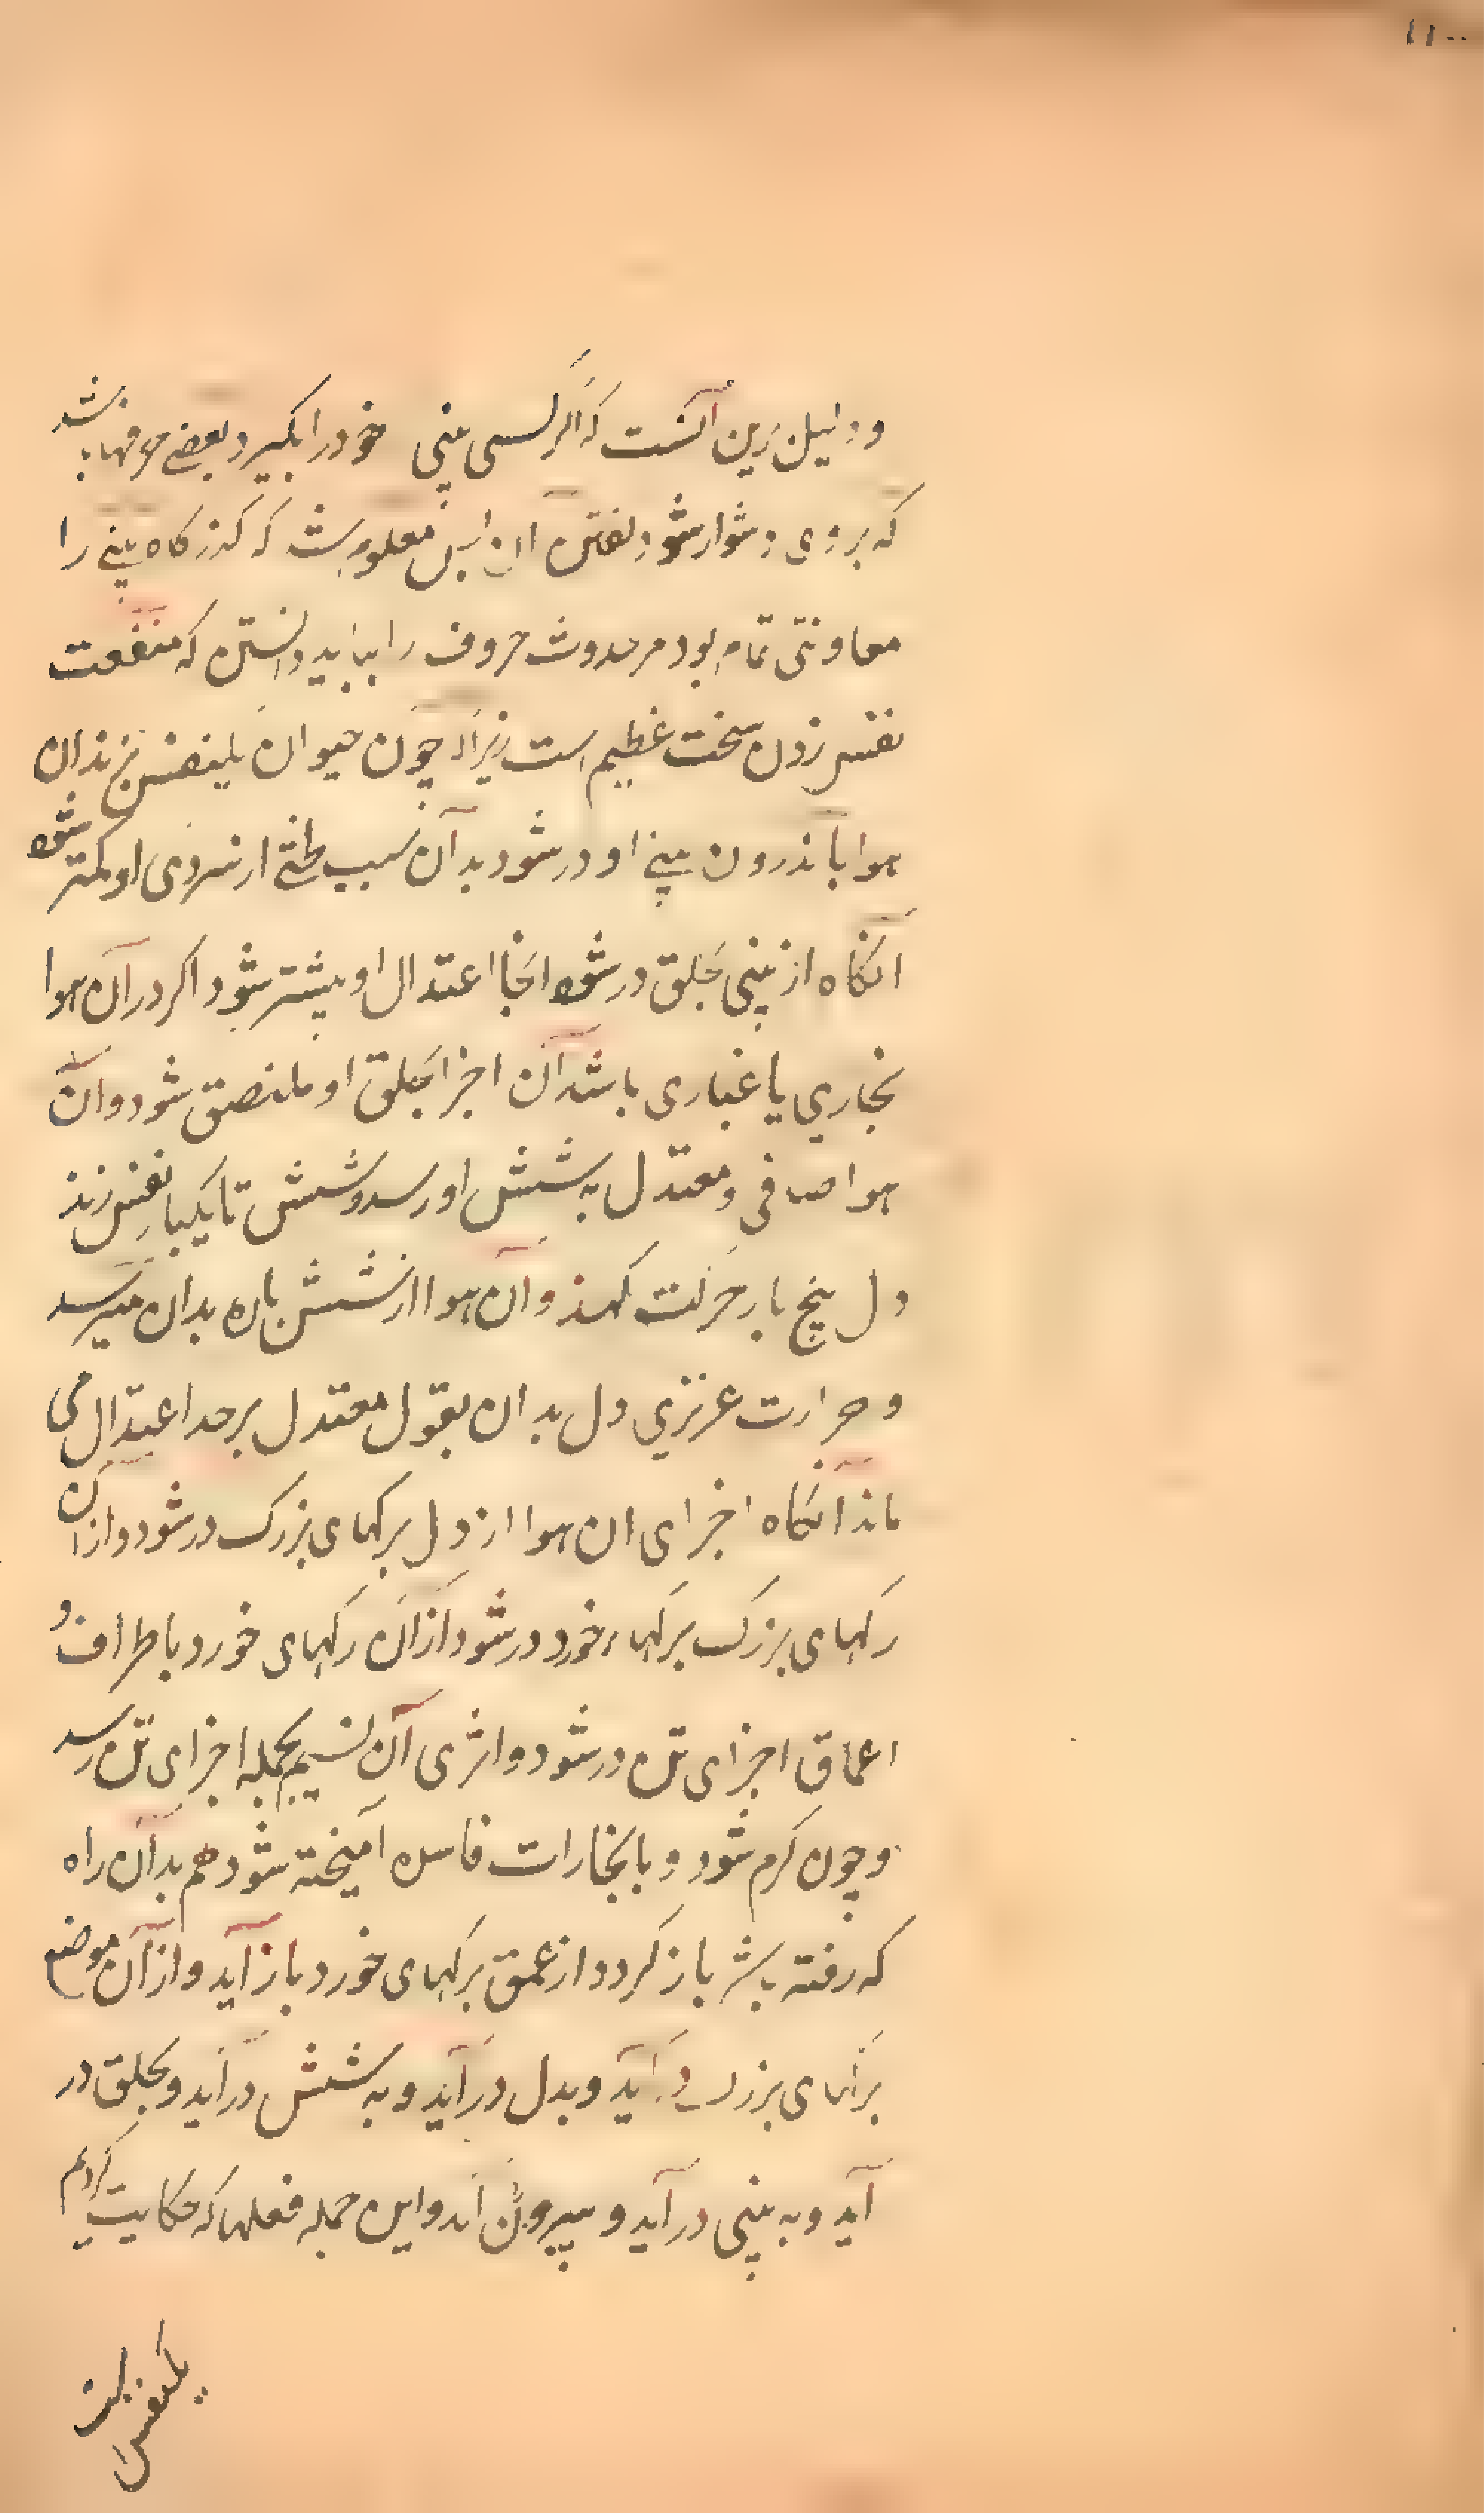 ودلیل برین آنست که اگر کسی بینی خود را بگیرد بعضی حرفها باشد
که بروی دشوار شود گفتن آن پس معلوم شد که گذرگاه بینی را
معاونتی تمام بود مر حدوث حروف را بباید دانستن که منفعت
نفس زدن سخت عظیم است زیرا که چون حیوان یک نفس بزند آن
هوا باندرون بینی او در شود بدان سبب لختی از سردی او کمتر شود
آنگاه از بینی بحلق در شود آنجا اعتدال او بیشتر شود اگر در آن هوا
بخاری یا غباری باشد آن اجزا بحلق او ملتصق شود و آن
هوا صافی و معتدل به شش او رسد و شش تا یکبار نفس زند
دل پنج بار حرکت کند و آن هوا از شش باره بدان میرسد
و حرارت غریزی دل بدان بقول معتدل بر حد اعتدال می
ماند آنگاه اجزای آن هوا از دل برگهای بزرگ در شود و از آن
رگهای بزرگ برگهاء خورد در شود از آن رگهای خورد باطراف و
اعماق اجزای تن در شود و اثری آن نسیم بجمله اجزای تن رسد
و چون گرم شود و با بخارات فاسده آمیخته شود هم بدان راه
که رفته باشد باز گردد از عمق برگهای خورد باز آید و از آن موضع
برگهای بزرگ در آید و بدل در آید و به شش در آید و بحلق در
آید و به بینی در آید و بیرون آید و این جمله فعلها که حکایت کردیم
بیک نفس